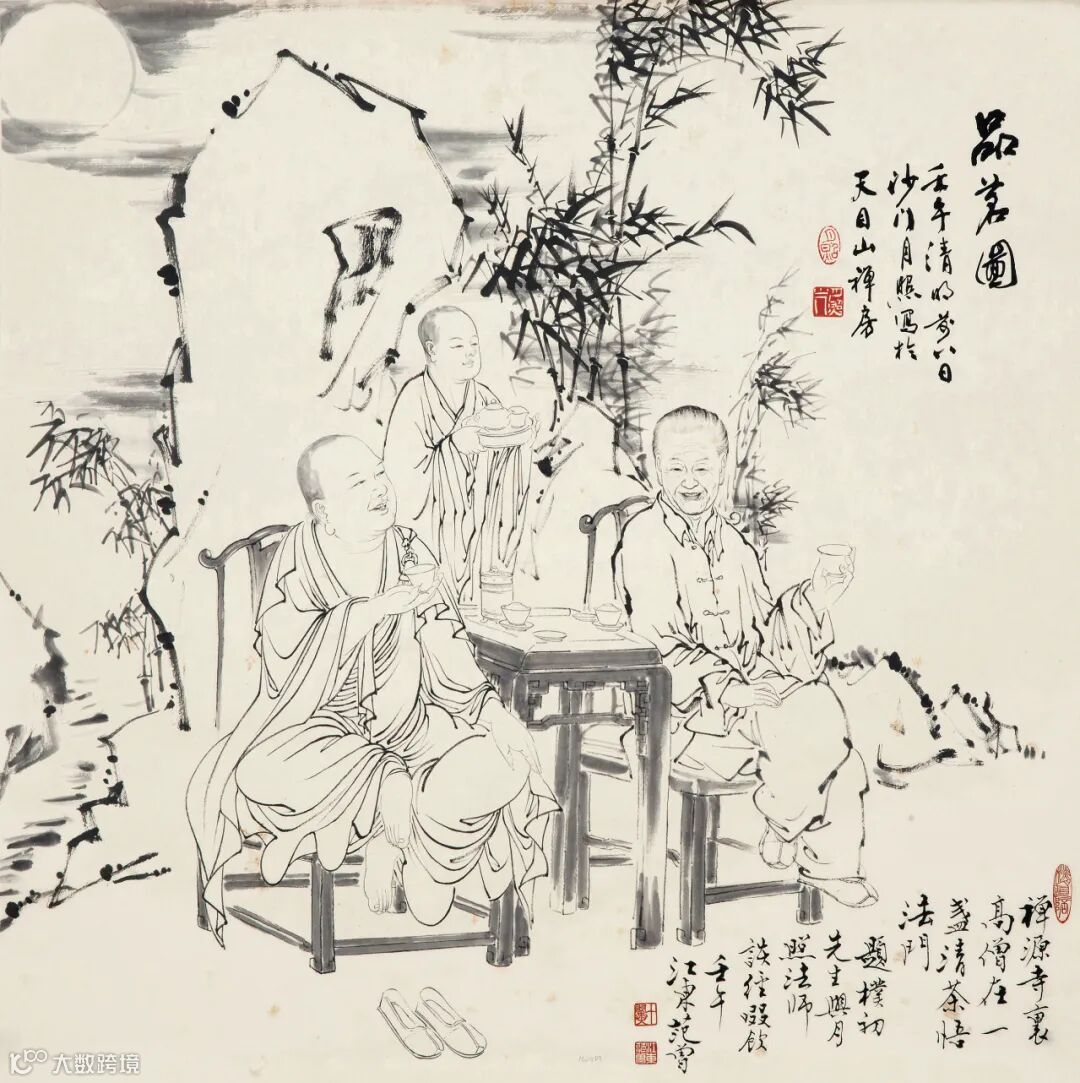 品茗圖
壬午清明前八日
沙門月照寫於
天目山禪房
禪源寺裏
高僧在一
盞清茶悟
法門
題樸初
先生與月
照法師
談經啜飲
壬午
江東范曾
大数跨境